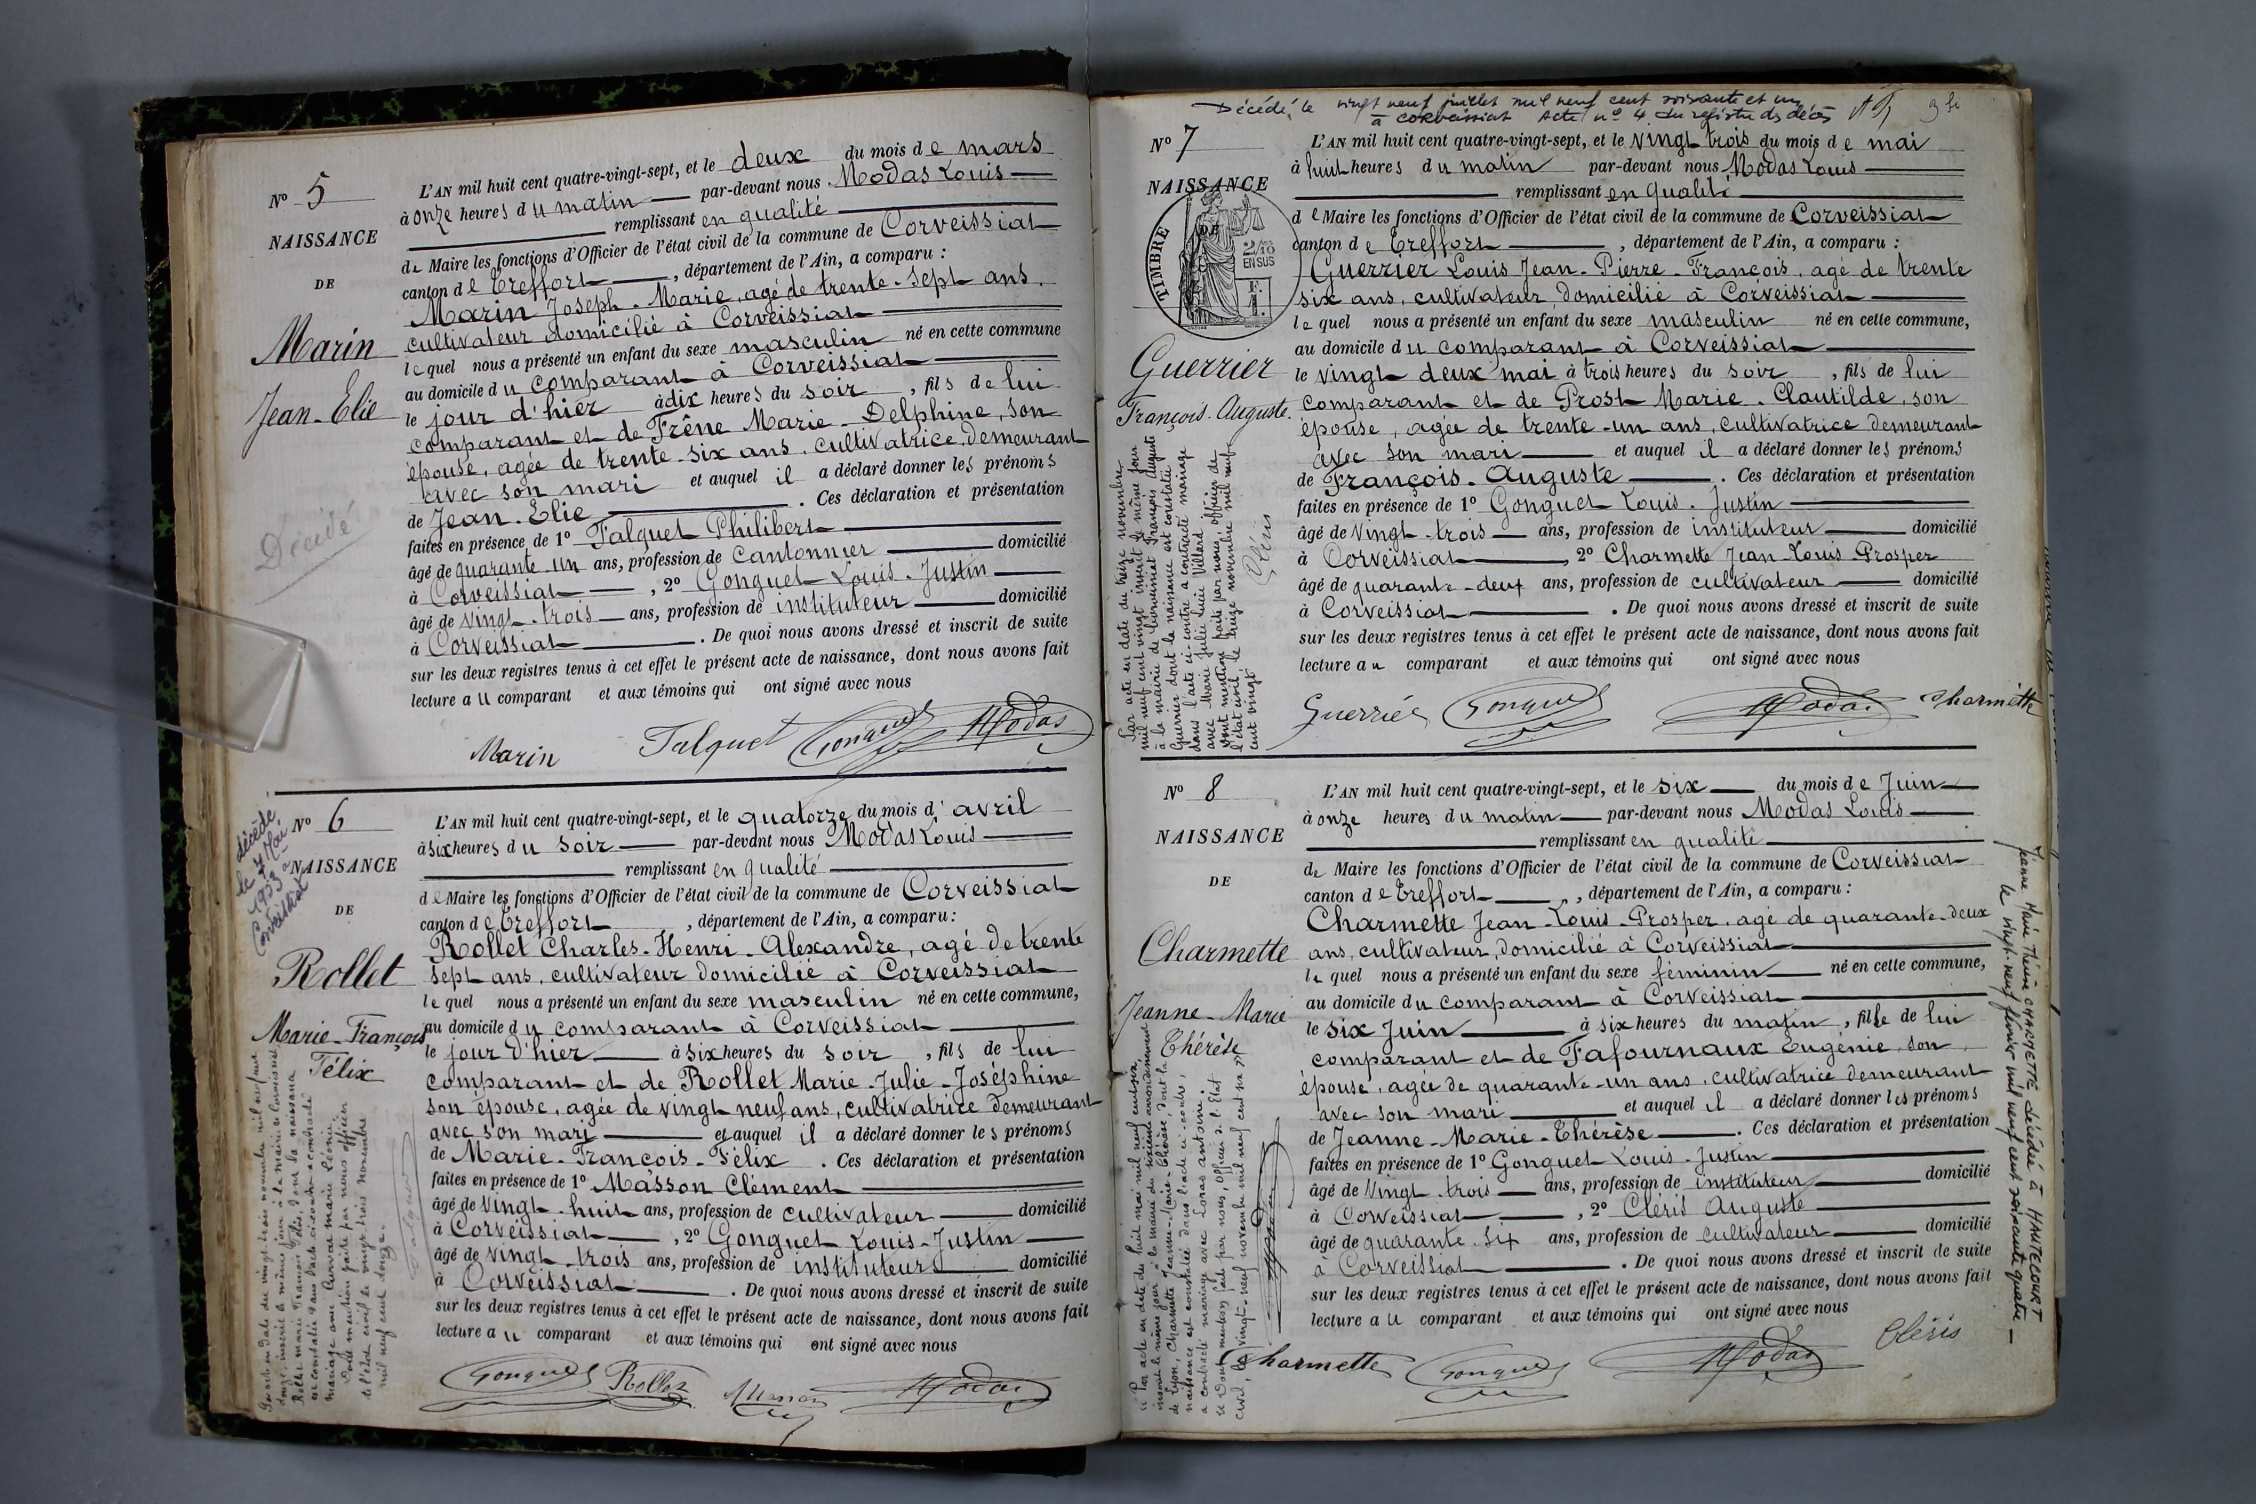 Nº 5
NAISSANCE
DE
Marin
Jean-Elie
Décédé
L'AN mil huit cent quatre-vingt-sept, et le deux du mois de mars
à onze heures du matin par-devant nous Modas Louis
remplissant en qualité
de Maire les fonctions d'Officier de l'état civil de la commune de Corveissiat
canton de Treffort, département de l'Ain, a comparu :
Marin Joseph-Marie, agé de trente-sept ans,
cultivateur domicilié à Corveissiat
lequel nous a présenté un enfant du sexe masculin né en cette commune
au domicile du comparant à Corveissiat
le jour d'hier à dix heures du soir, fils de lui
comparant et de Frêne Marie-Delphine, son
épouse, agée de trente-six ans, cultivatrice, demeurant
avec son mari et auquel il a déclaré donner les prénoms
de Jean-Elie. Ces déclaration et présentation
faites en présence de 1º Falquet Philibert
âgé de quarante-un ans, profession de Cantonnier domicilié
à Corveissiat, 2º Gonguet Louis-Justin
âgé de vingt-trois ans, profession de instituteur domicilié
à Corveissiat. De quoi nous avons dressé et inscrit de suite
sur les deux registres tenus à cet effet le présent acte de naissance, dont nous avons fait
lecture au comparant et aux témoins qui ont signé avec nous
Marin Falquet Gonguet Modas
décédé
le 7 Mai
1953 à
Corveissiat
Nº 6
NAISSANCE
DE
Rollet
Marie-François
Félix
L'AN mil huit cent quatre-vingt-sept, et le quatorze du mois d'avril
à six heures du soir par-devant nous Modas Louis
remplissant en qualité
de Maire les fonctions d'Officier de l'état civil de la commune de Corveissiat
canton de Treffort, département de l'Ain, a comparu :
Rollet Charles-Henri-Alexandre, agé de trente
sept ans, cultivateur domicilié à Corveissiat
lequel nous a présenté un enfant du sexe masculin né en cette commune,
au domicile du comparant à Corveissiat
le jour d'hier à six heures du soir, fils de lui
comparant et de Rollet Marie-Julie-Joséphine
son épouse, agée de vingt neuf ans, cultivatrice demeurant
avec son mari et auquel il a déclaré donner les prénoms
de Marie-François-Félix. Ces déclaration et présentation
faites en présence de 1º Masson Clément
âgé de vingt-huit ans, profession de cultivateur domicilié
à Corveissiat, 2º Gonguet Louis-Justin
âgé de vingt-trois ans, profession de instituteur domicilié
à Corveissiat. De quoi nous avons dressé et inscrit de suite
sur les deux registres tenus à cet effet le présent acte de naissance, dont nous avons fait
lecture au comparant et aux témoins qui ont signé avec nous
Gonguet Rollet Masson Modas
Décédé le vingt neuf juillet mil neuf cent soixante et un
à Corveissiat Acte nº 4 du registre des décès
Nº 7
NAISSANCE
TIMBRE
2/10
EN SUS
F.
1.
Guerrier
François-Auguste
Par acte en date du treize novembre
mil neuf cent vingt inscrit le même jour
dans l'acte ci-contre a contracté mariage
avec Marie Julie Lucie Villard
l'état civil, le treize novembre mil neuf
cent vingt
Cléris
L'AN mil huit cent quatre-vingt-sept, et le vingt trois du mois de mai
à huit heures du matin par-devant nous Modas Louis
remplissant en qualité
de Maire les fonctions d'Officier de l'état civil de la commune de Corveissiat
canton de Treffort, département de l'Ain, a comparu :
Guerrier Louis Jean-Pierre-François, agé de trente
six ans, cultivateur domicilié à Corveissiat
lequel nous a présenté un enfant du sexe masculin né en cette commune,
au domicile du comparant à Corveissiat
le vingt deux mai à trois heures du soir, fils de lui
comparant et de Prost Marie-Clautilde, son
épouse, agée de trente-un ans, cultivatrice demeurant
avec son mari et auquel il a déclaré donner les prénoms
de François-Auguste. Ces déclaration et présentation
faites en présence de 1º Gonguet Louis-Justin
âgé de vingt-trois ans, profession de instituteur domicilié
à Corveissiat, 2º Charmette Jean-Louis Prosper
âgé de quarante-deux ans, profession de cultivateur domicilié
à Corveissiat. De quoi nous avons dressé et inscrit de suite
sur les deux registres tenus à cet effet le présent acte de naissance, dont nous avons fait
lecture au comparant et aux témoins qui ont signé avec nous
Guerrier Gonguet Modas Charmette
Nº 8
NAISSANCE
DE
Charmette
Jeanne-Marie
Thérèse
L'AN mil huit cent quatre-vingt-sept, et le six du mois de Juin
à onze heures du matin par-devant nous Modas Louis
remplissant en qualité
de Maire les fonctions d'Officier de l'état civil de la commune de Corveissiat
canton de Treffort, département de l'Ain, a comparu :
Charmette Jean-Louis-Prosper, agé de quarante-deux
ans, cultivateur, domicilié à Corveissiat
lequel nous a présenté un enfant du sexe féminin né en cette commune,
au domicile du comparant à Corveissiat
le six Juin à six heures du matin, fille de lui
comparant et de Fafournaux Eugénie, son
épouse, agée de quarante-un ans, cultivatrice demeurant
avec son mari et auquel il a déclaré donner les prénoms
de Jeanne-Marie-Thérèse. Ces déclaration et présentation
faites en présence de 1º Gonguet Louis-Justin
âgé de vingt-trois ans, profession de instituteur domicilié
à Corveissiat, 2º Cléris Auguste
âgé de quarante-six ans, profession de cultivateur domicilié
à Corveissiat. De quoi nous avons dressé et inscrit de suite
sur les deux registres tenus à cet effet le présent acte de naissance, dont nous avons fait
lecture au comparant et aux témoins qui ont signé avec nous
Charmette Gonguet Modas Cléris
Jeanne Marie Thérèse CHARMETTE décédée à HAUTECOURT
le vingt-neuf février mil neuf cent soixante quatre